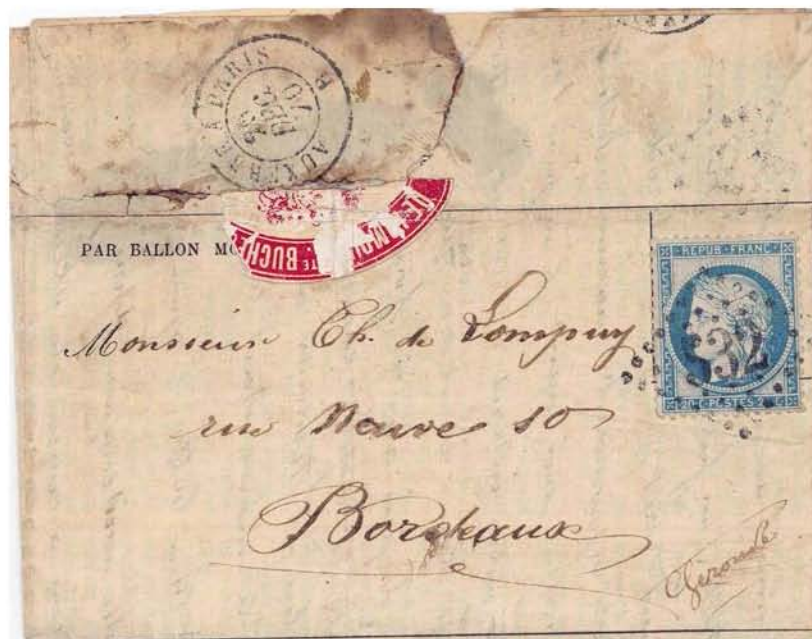 PARIS
DEC
70
PAR BALLON MO
BUCH
REPUB · FRANC ·
32
20 C · POSTES · 20 C
Monsieur Ch. de Lompuy
rue Neuve 10
Bordeaux
Gironde